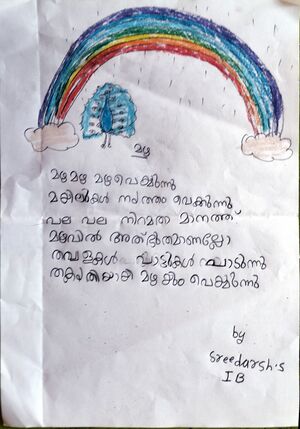 മഴ
മഴ മഴ മഴ പെയ്യുന്നു
മയിലുകൾ നൃത്തം വെക്കുന്നു
പല പല നിറമതാ മാനത്ത്
മഴവിൽ അത്ഭുതമാണല്ലോ
തവളകൾ പാട്ടുകൾ പാടുന്നു
മഴ പെയ്യുന്നു
by
Sreedarsh.S
I B